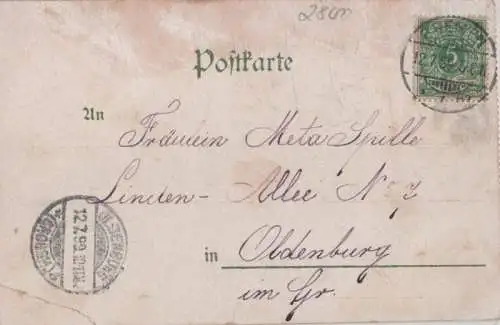 Postkarte
5
An
Fräulein Meta Spille
Linden-Allee No 7
in Oldenburg
im Gr.
OLDENBURG
12.7.99.
(GROSSH.)